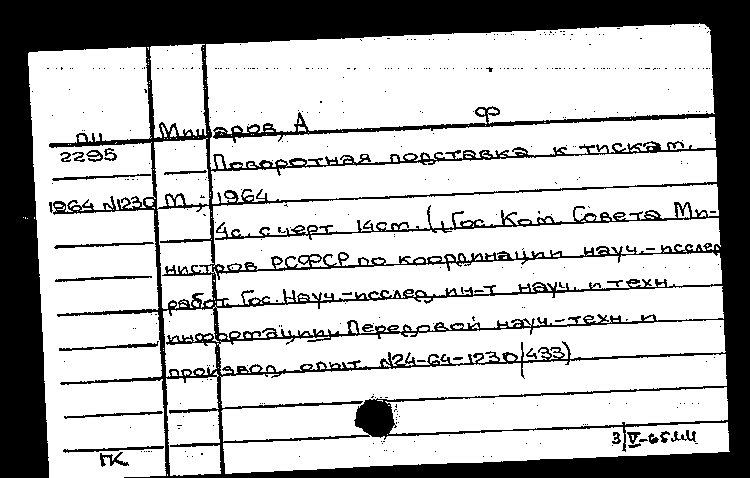 Ф
ПИ Мишаров, А
2295 Поворотная подставка к тискам.
1964 N1230 М., 1964.
4с. с черт. 14см. (Гос. Ком. Совета Ми-
нистров РСФСР по координации науч.-исслед
работ. Гос. Науч.-исслед. ин-т науч. и техн.
информации. Передовой науч.-техн. и
производ. опыт. N24-64-1230/433).
3/V-65
ГК